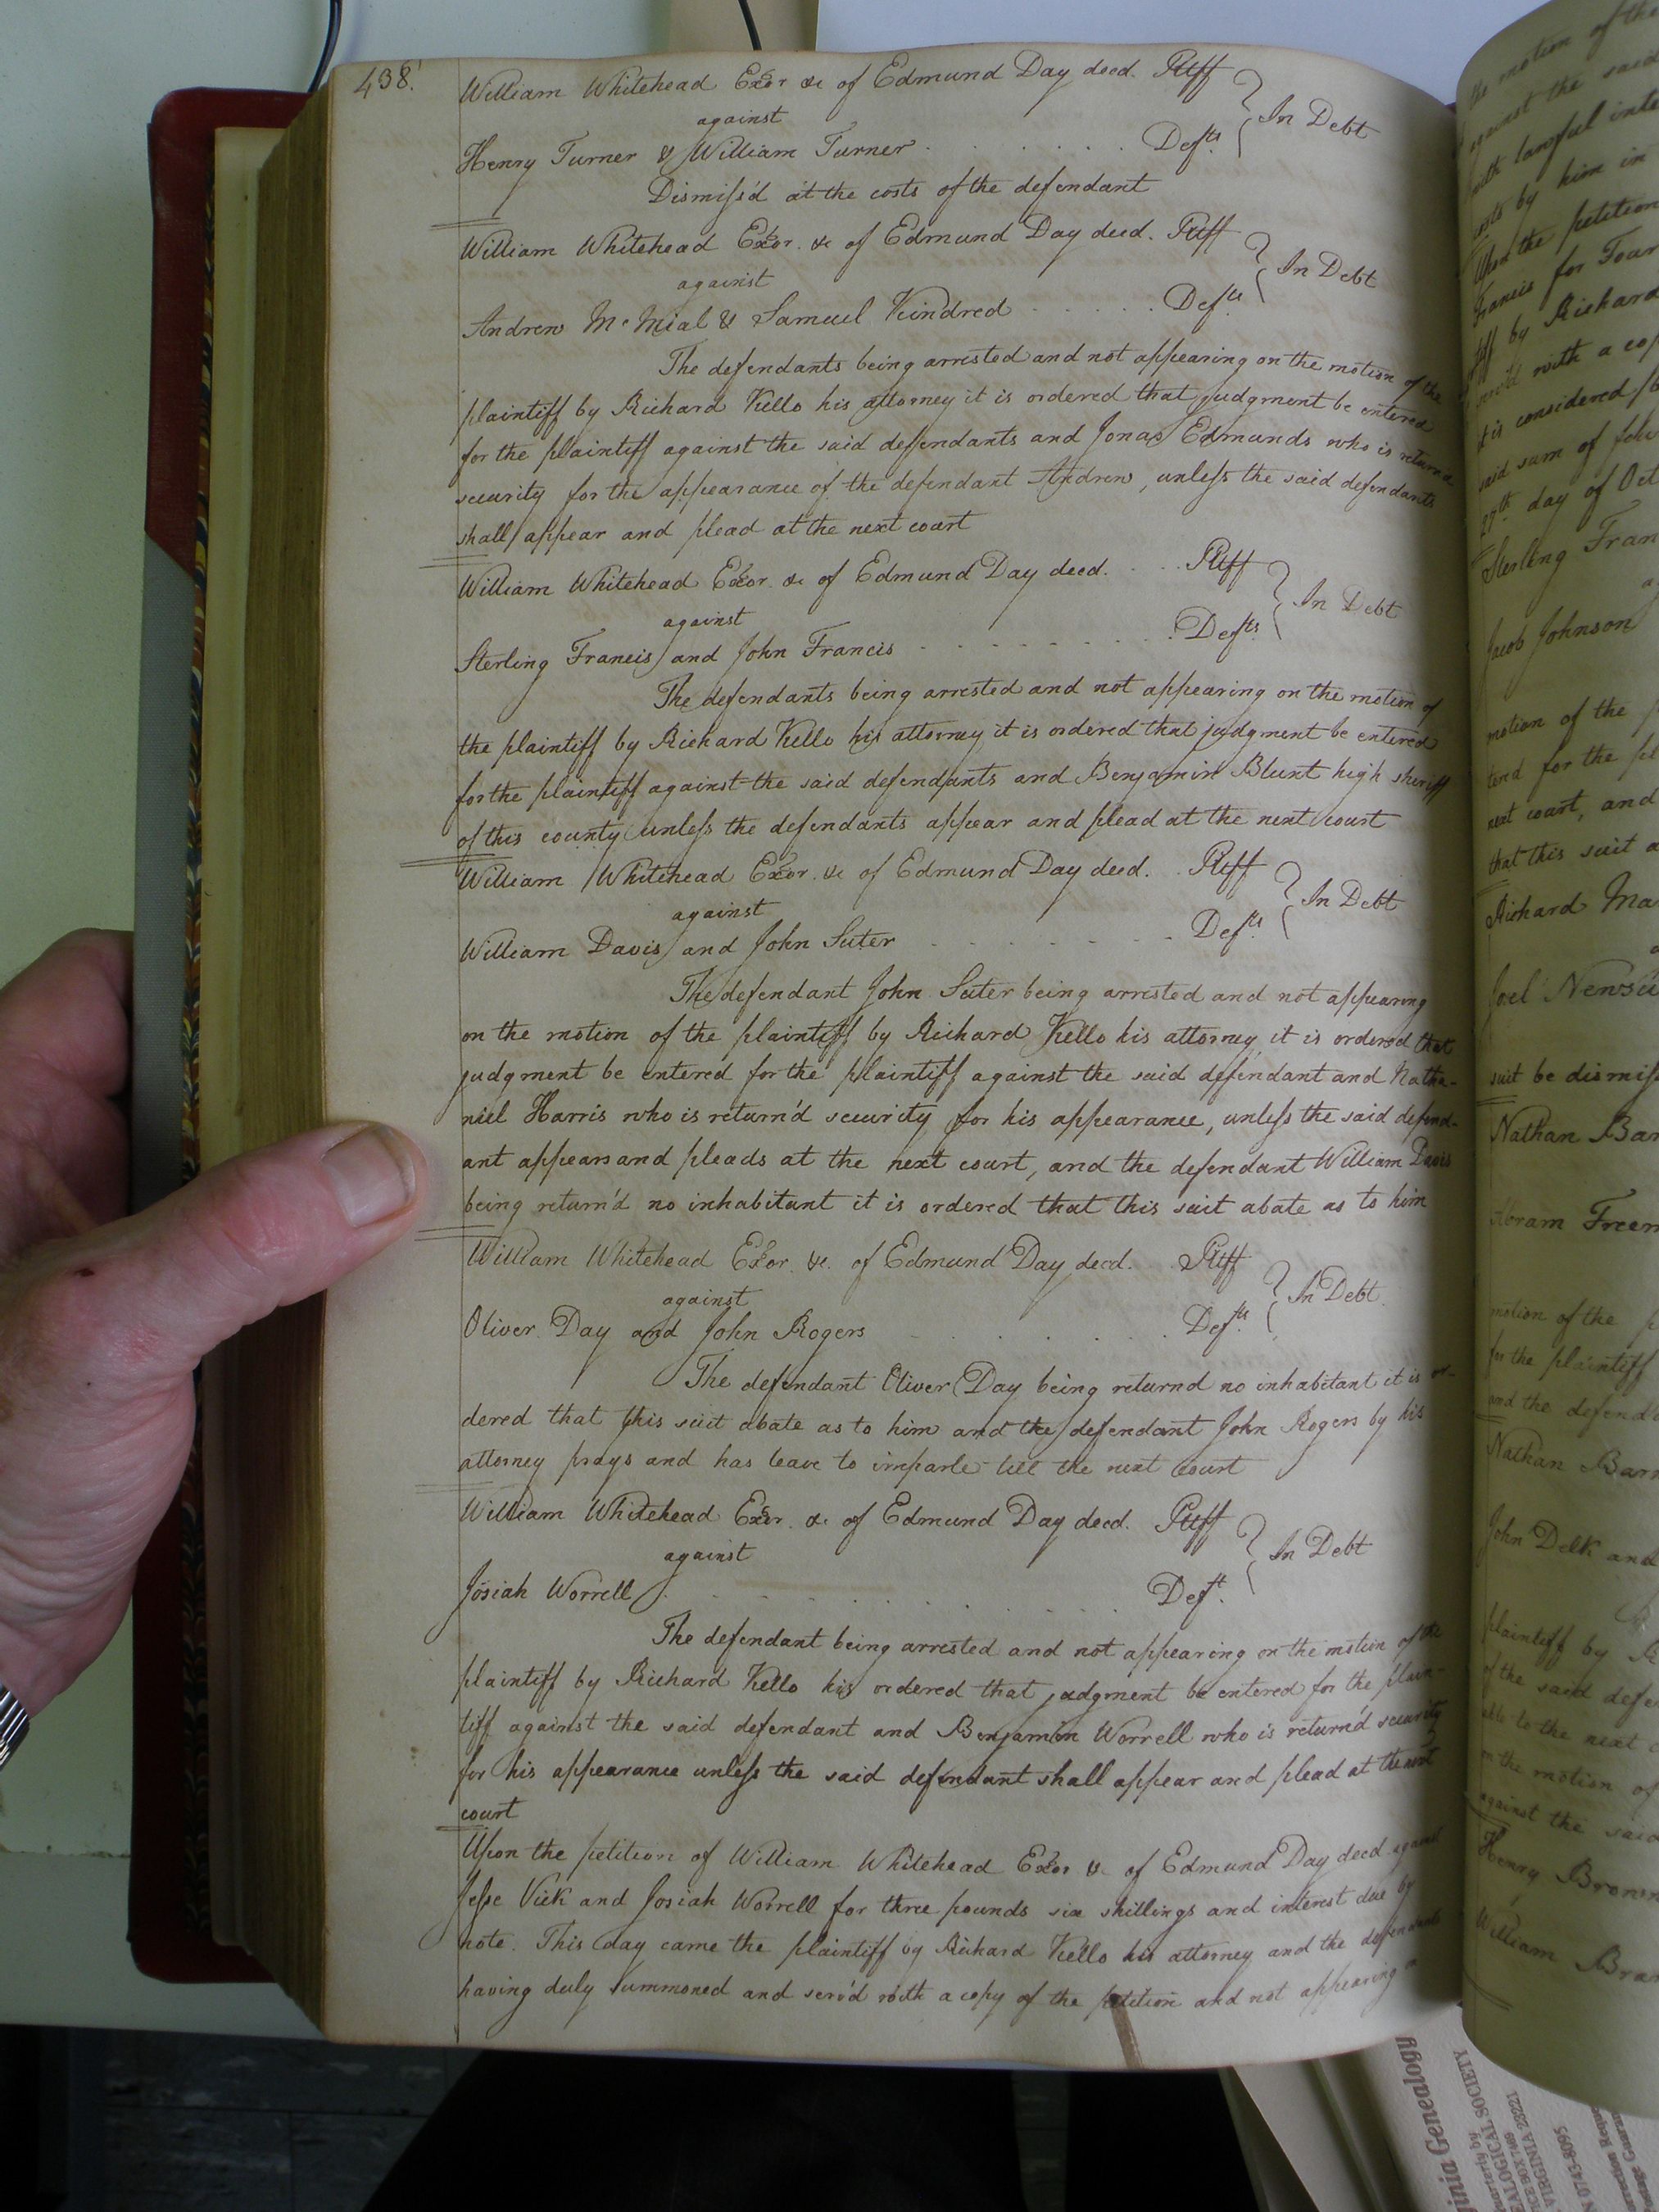 438.
William Whitehead Exor &c of Edmund Day decd. Pltff
against
In Debt
Henry Turner & William Turner . . . . . . Defts.
Dismiss'd at the costs of the defendant
William Whitehead Exor. &c of Edmund Day decd. Pltff
against
In Debt
Andrew McMial & Samuel Kindred . . . . . Defts.
The defendants being arrested and not appearing on the motion of the
plaintiff by Richard Kello his attorney it is ordered that judgment be entered
for the plaintiff against the said defendants and Jonas Edmunds who is return'd
security for the appearance of the defendant Andrew, unless the said defendants
shall appear and plead at the next court
William Whitehead Exor. &c of Edmund Day decd. . . . Pltff
against
In Debt
Sterling Francis and John Francis . . . . . . . Defts.
The defendants being arrested and not appearing on the motion of
the plaintiff by Richard Kello his attorney it is ordered that judgment be entered
for the plaintiff against the said defendants and Benjamin Blunt high sheriff
of this county unless the defendants appear and plead at the next court
William Whitehead Exor. &c of Edmund Day decd. . Pltff
against
In Debt
William Davis and John Suter . . . . . . . Defts.
The defendant John Suter being arrested and not appearing
on the motion of the plaintiff by Richard Kello his attorney it is ordered that
judgment be entered for the plaintiff against the said defendant and Natha-
niel Harris who is return'd security for his appearance, unless the said defend-
ant appears and pleads at the next court, and the defendant William Davis
being return'd no inhabitant it is ordered that this suit abate as to him
William Whitehead Exor. &c. of Edmund Day decd. . Pltff
against
In Debt
Oliver Day and John Rogers . . . . . . Defts.
The defendant Oliver Day being returnd no inhabitant it is or-
dered that this suit abate as to him and the defendant John Rogers by his
attorney prays and has leave to imparle till the next court
William Whitehead Exor. &c of Edmund Day decd. Pltff
against
In Debt
Josiah Worrell . . . . . . . . . . Deft.
The defendant being arrested and not appearing on the motion of the
plaintiff by Richard Kello his ordered that judgment be entered for the plain-
tiff against the said defendant and Benjamin Worrell who is return'd security
for his appearance unless the said defendant shall appear and plead at the next
court
Upon the petition of William Whitehead Exor &c of Edmund Day decd against
Jesse Vick and Josiah Worrell for three pounds six shillings and interest due by
note. This day came the plaintiff by Richard Kello his attorney and the defendants
having duly summoned and serv'd with a copy of the petition and not appearing
the motion of the
against the said
with lawful
costs by him in
Upon the petition
Francis for Four
by Richard
with a
it is considered
said sum of
27th day of Oct
Sterling Fran
Jacob Johnson
motion of the
for the
next court, and
that this suit
Richard Ma
Joel Newsu
suit be dismiss
Nathan Bar
Abram Freem
motion of the
for the plaintiff
and the defend
Nathan Barn
John Delk and
plaintiff by
of the said
to the next
on the motion of
against the said
Henry Brown
William Bra
inia Genealogy
quarterly by
ALOGICAL SOCIETY
BOX 7469
VIRGINIA 23221
0743-8095